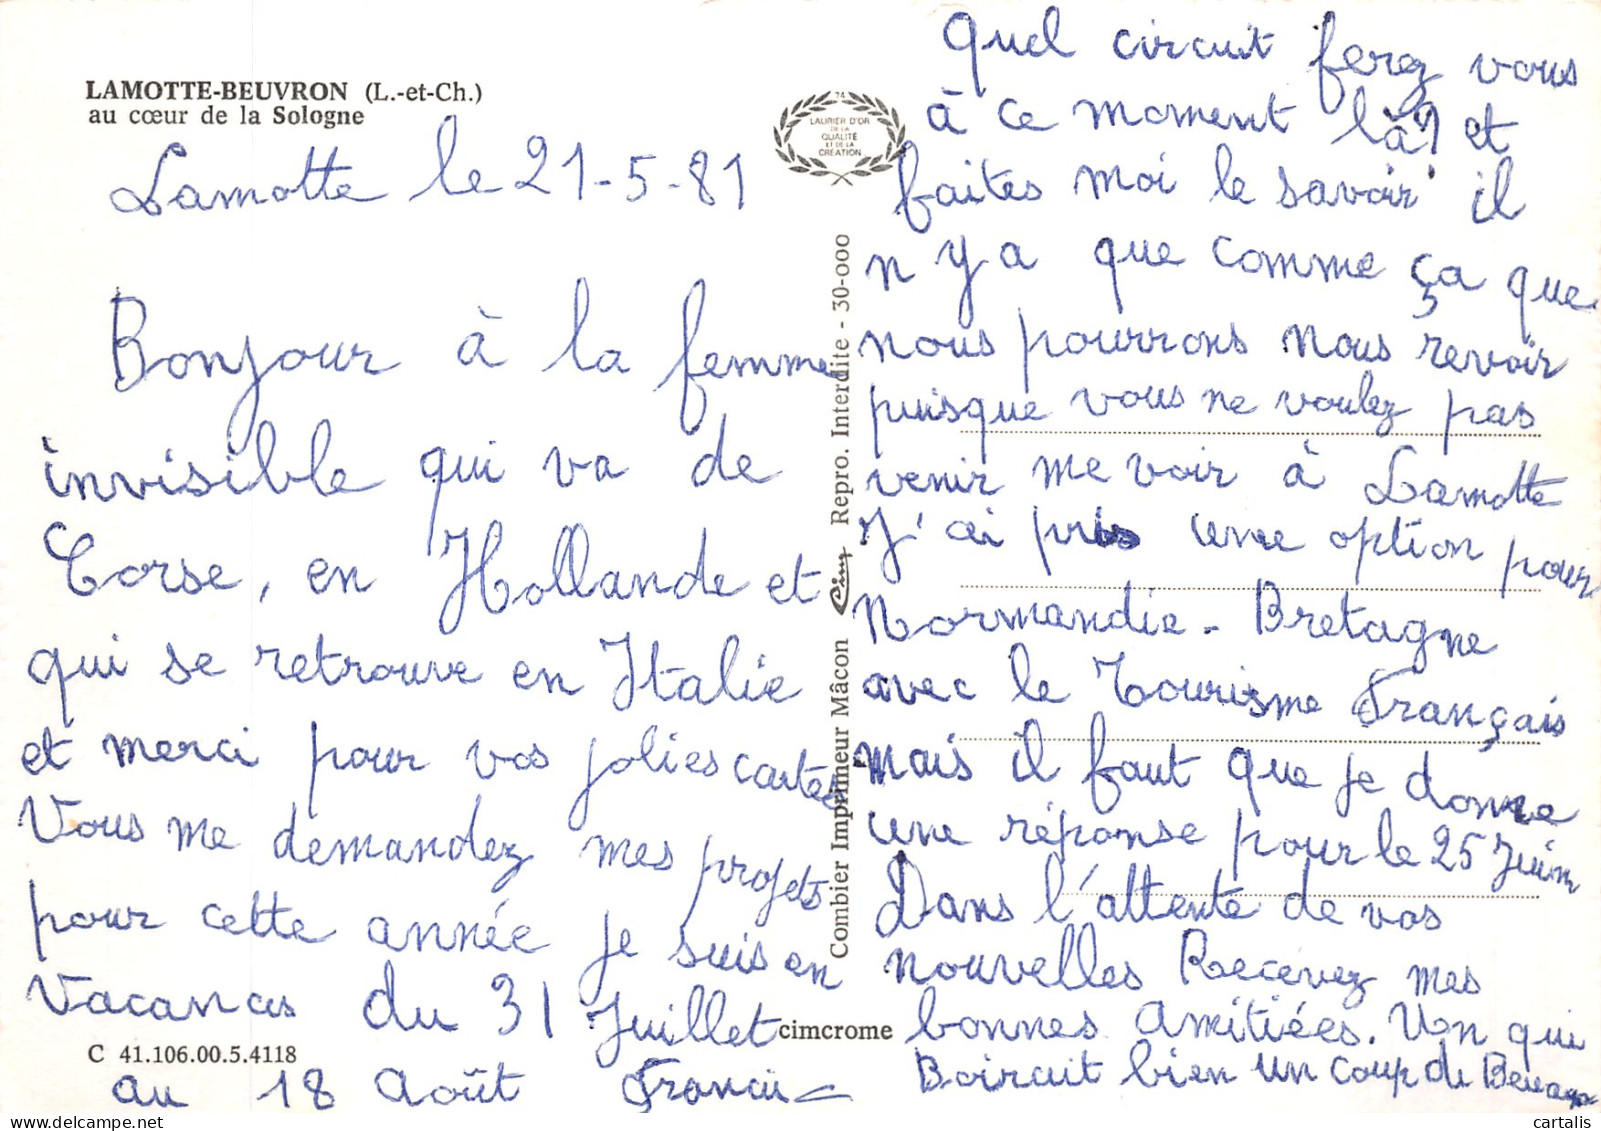 LAMOTTE-BEUVRON (L.-et-Ch.)
au cœur de la Sologne
Lamotte le 21-5-81
Bonjour à la femme
invisible qui va de
Corse, en Hollande et
qui se retrouve en Italie
et merci pour vos jolies cartes
Vous me demandez mes projets
pour cette année je suis en
Vacances du 31 Juillet
au 18 Août Francis
C 41.106.00.5.4118
74
LAURIER D'OR
DE LA
QUALITÉ
ET DE LA
CRÉATION
Combier Imprimeur Mâcon Cim Repro. Interdite - 30-000
cimcrome
Quel circuit ferez vous
à ce moment là? et
faites moi le savoir il
n y a que comme ça que
nous pourrons nous revoir
puisque vous ne voulez pas
venir me voir à Lamotte
J'ai pris une option pour
Normandie - Bretagne
avec le Tourisme Français
mais il faut que je donne
une réponse pour le 25 Juin
Dans l'attente de vos
nouvelles Recevez mes
bonnes Amitiées. Un qui
Boirait bien un coup de
cartalis